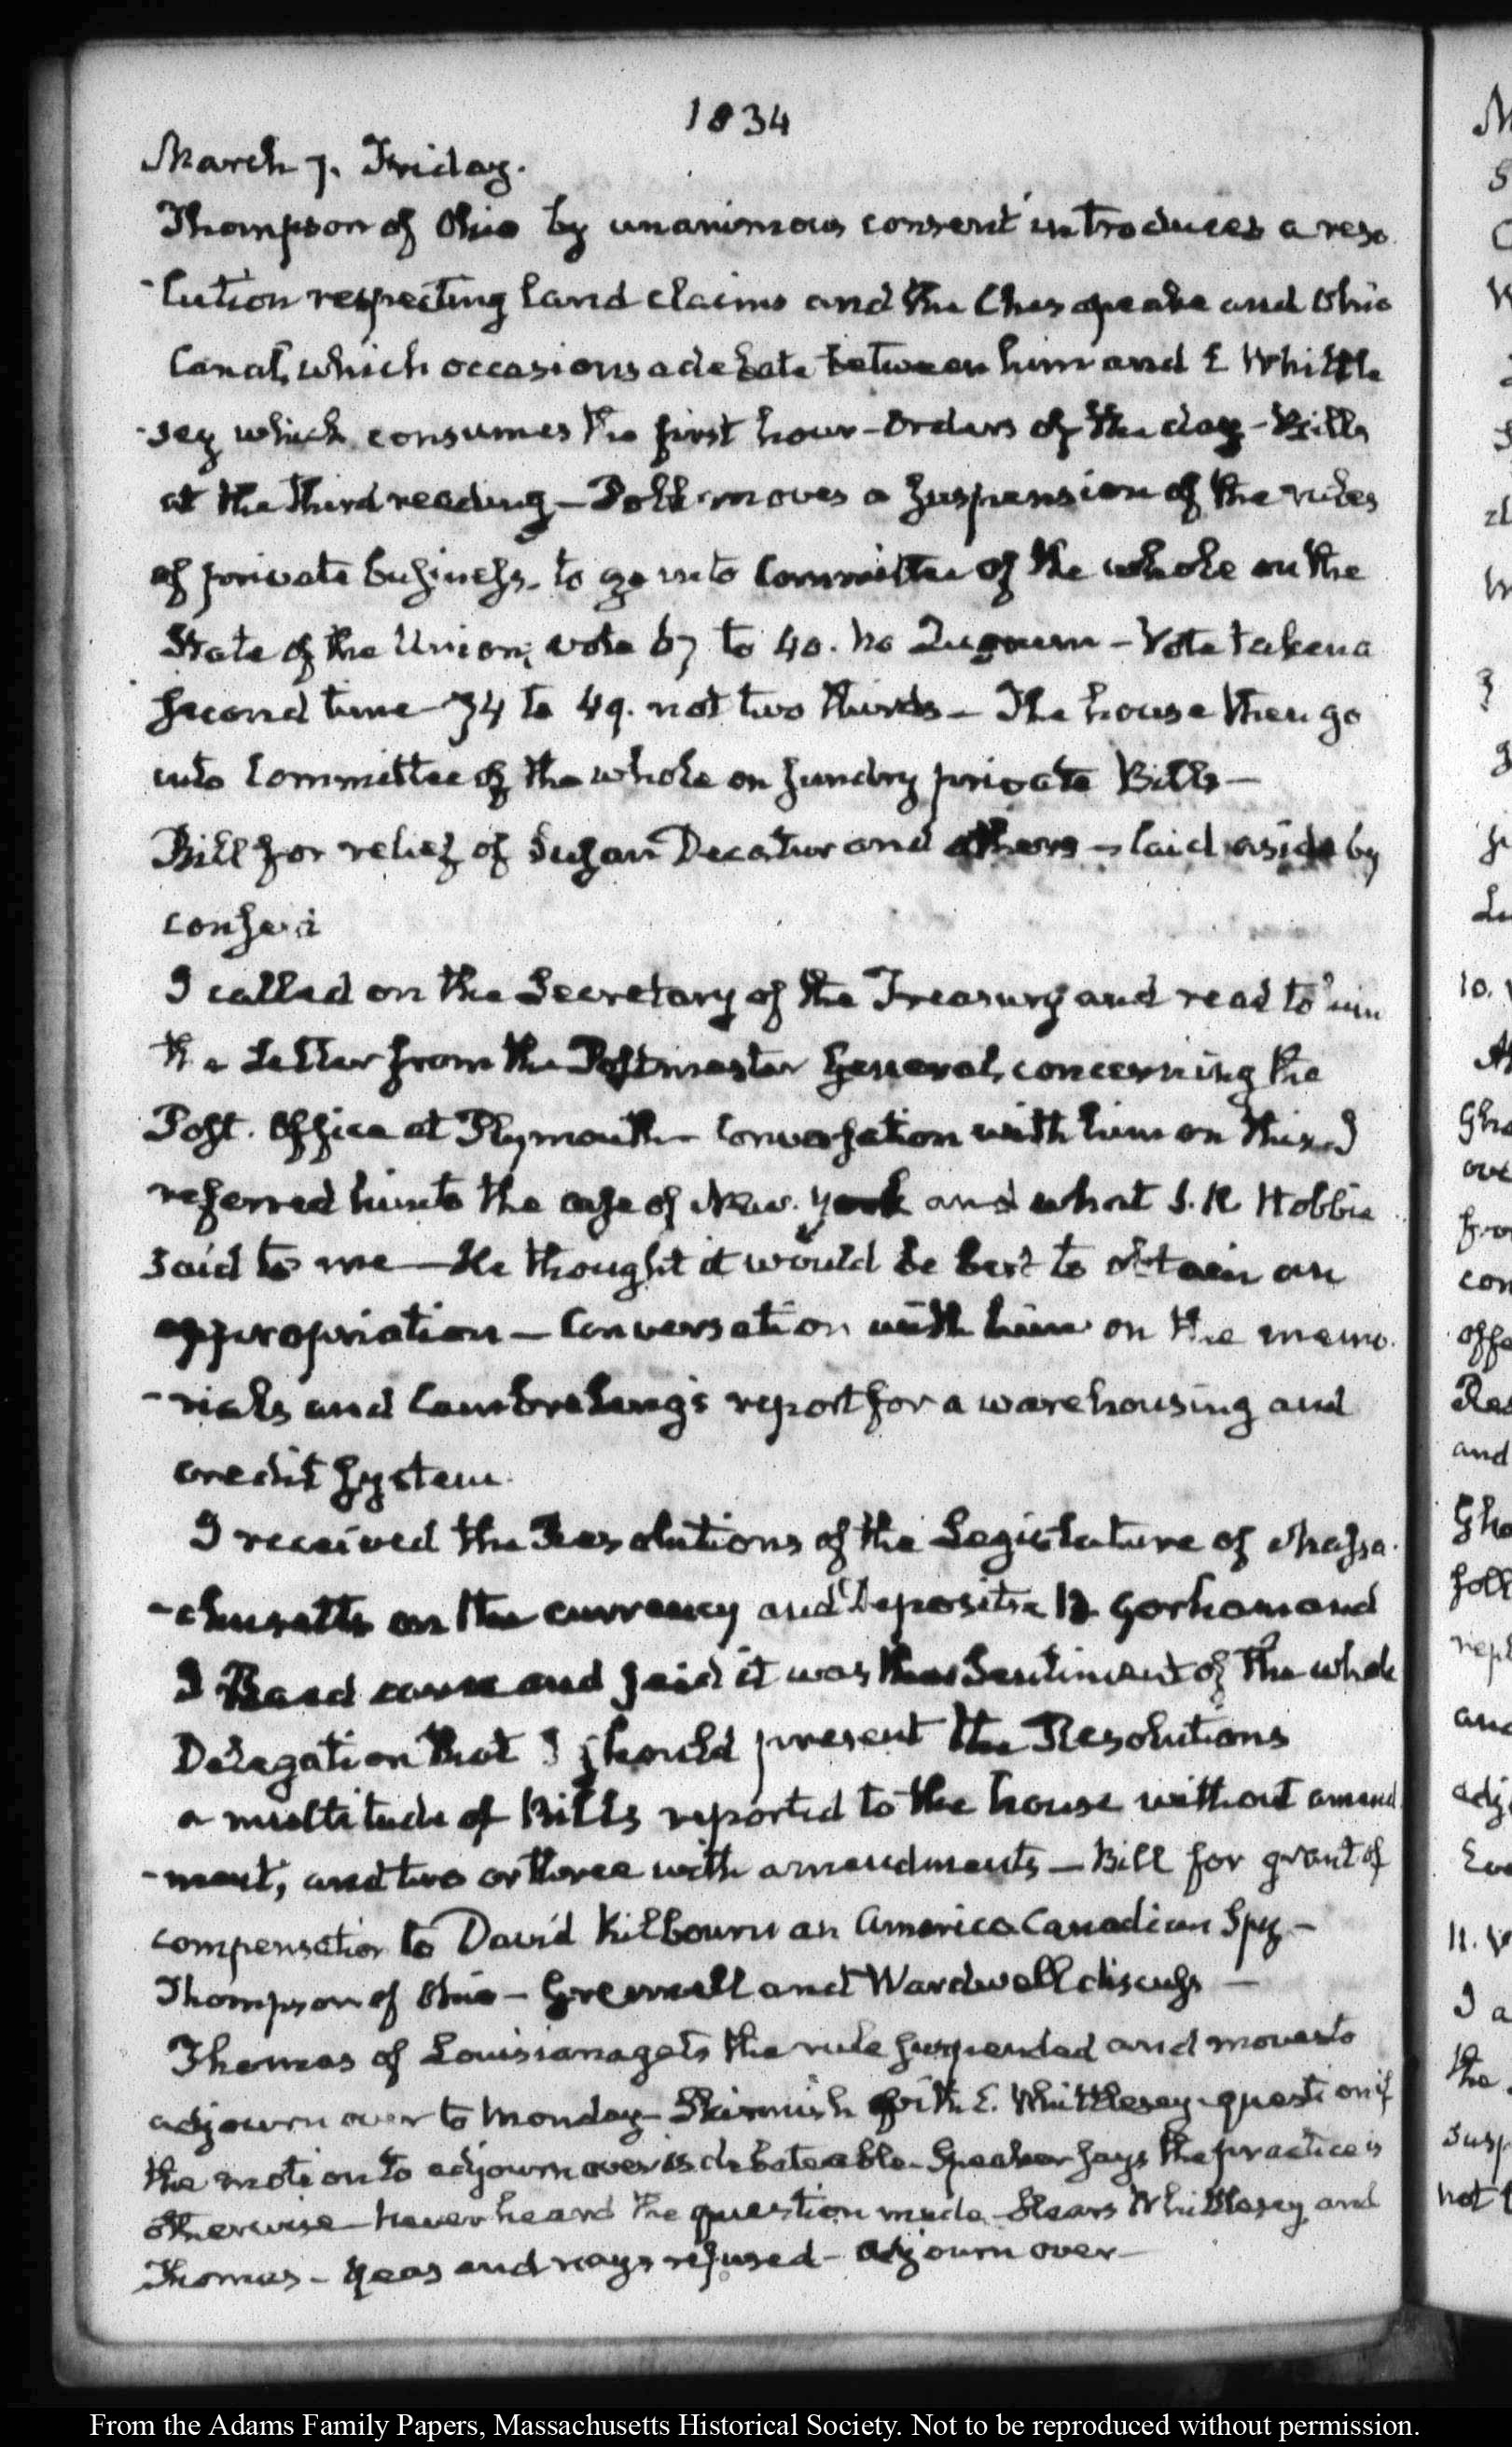 1834
March 7. Friday.
Thompson of Ohio by unanimous consent introduces a reso
-lution respecting land claims and the Chesapeake and Ohio
Canal, which occasions a debate between him and E Whittle
-sey which consumes the first hour - Orders of the day - Bills
at the third reading - Polk moves a suspension of the rules
of private business, to go into Committee of the whole on the
State of the Union, vote 67 to 40. no Quorum - Vote taken a
second time 74 to 49. not two thirds - The house then go
into Committee of the whole on sundry private Bills -
Bill for relief of Susan Decatur and others - laid aside by
consent
I called on the Secretary of the Treasury and read to him
the Letter from the Postmaster General, concerning the
Post. Office at Plymouth - Conversation with him on this. I
referred him to the case of New. York and what S. R Hobbie
said to me - He thought it would be best to obtain an
appropriation - Conversation with him on the memo.
-rials and Cambreleng's report for a warehousing and
credit system.
I received the Resolutions of the Legislature of Massa.
-chusetts on the currency and Deposits. Gorham and
Reed came and said it was the Sentiment of the whole
Delegation that I should present the Resolutions
a multitude of Bills reported to the house without amend
-ment, and two or three with amendments - Bill for grant of
compensation to David Kilbourn an America Canadian Spy -
Thompson of Ohio - Grennell and Wardwell discuss -
Thomas of Louisiana gets the rule suspended and moves to
adjourn over to Monday - Skirmish with E. Whittlesey - question if
the motion to adjourn over is debateable - Speaker says the practice is
otherwise - never heard the question made - Hears Whittlesey and
Thomas - Yeas and nays refused - Adjourn over -
From the Adams Family Papers, Massachusetts Historical Society. Not to be reproduced without permission.